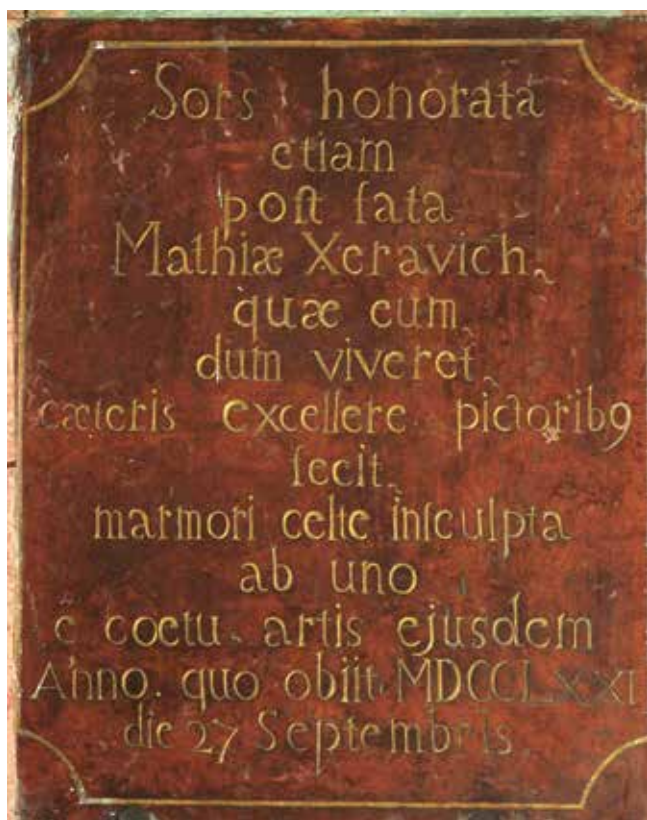 Sors honorata
etiam
poſt fata
Mathiæ Xeravich,
quæ eum,
dum viveret,
cæteris excellere pictorib9
fecit,
marmori celte inſculpta
ab uno
e coetu artis ejusdem
Anno quo obiit MDCCLXXI
die 27 Septembris.